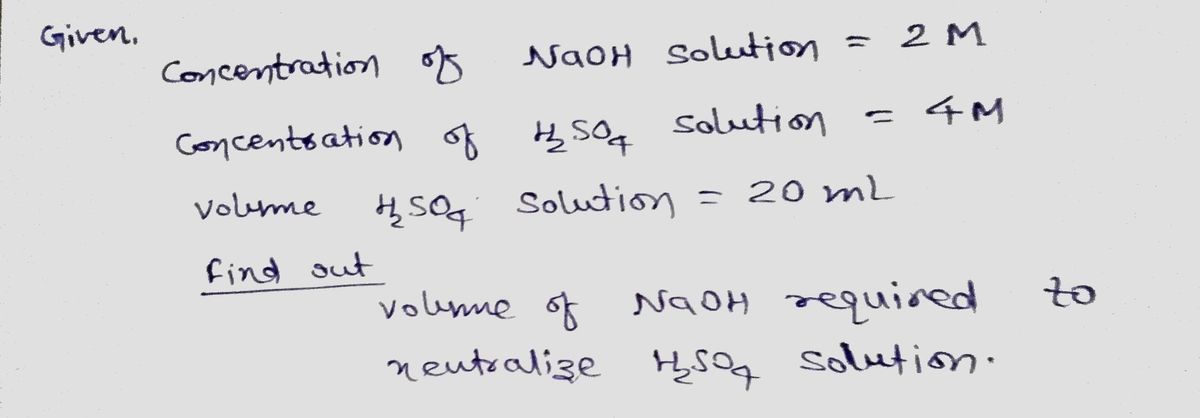 Given,
Concentration of NaOH solution = 2 M
Concentration of H₂SO₄ solution = 4M
volume H₂SO₄ solution = 20 mL
find out
volume of NaOH required to
neutralize H₂SO₄ solution.